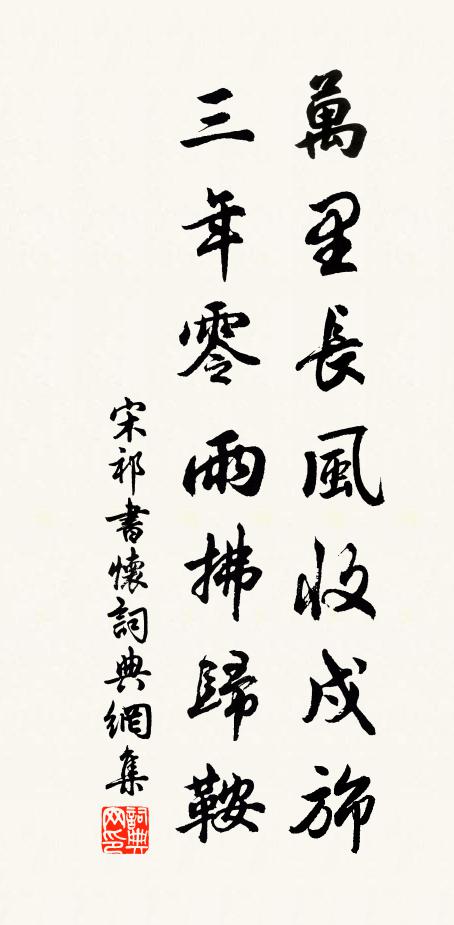 萬里長風收戍旆
三年零雨拂歸鞍
宋祁書懷詞典網集
詞典網印